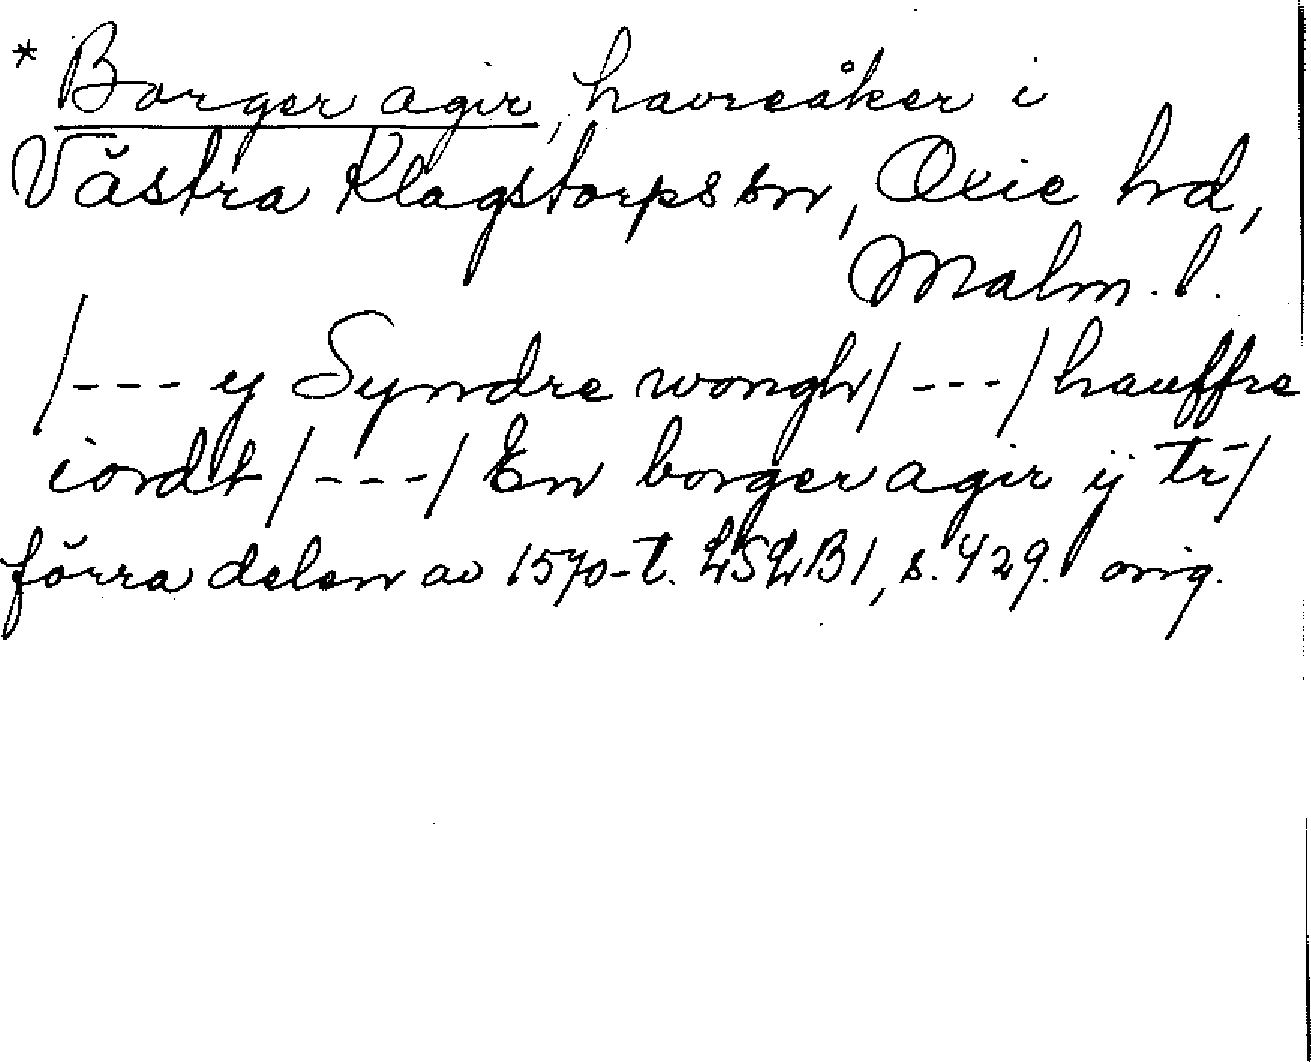 * Borger agir, havreåker i
Västra Klagstorps sn, Oxie hd,
Malm. l.
/--- y Syndre wongh/---/ hauffre
iordt/---/ En borger agir ij tr̄/
förra delen av 1570-t. LSLB1, s. 429. orig.